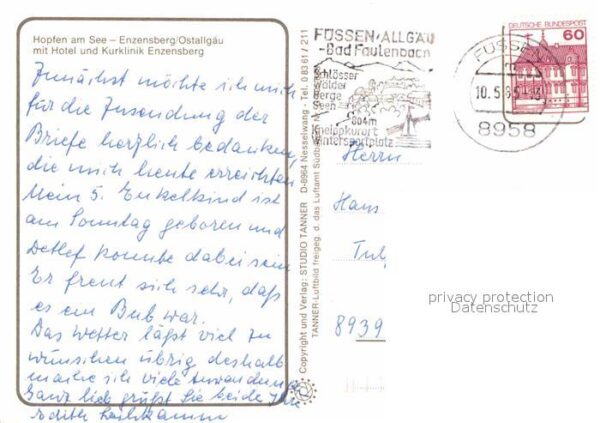 Hopfen am See – Enzensberg/Ostallgäu
mit Hotel und Kurklinik Enzensberg
Zunächst möchte ich mich
für die Zusendung der
Briefe herzlich bedanken,
die mich heute erreichten.
Mein 5. Enkelkind ist
am Sonntag geboren und
Detlef konnte dabei sein
Er freut sich sehr, daß
es ein Bub war.
Das Wetter läßt viel zu
wünschen übrig deshalb
mache ich viele Wanderun
Ganz lieb grüßt Sie beide Ihre
Edith
Copyright und Verlag: STUDIO TANNER D-8964 Nesselwang - Tel. 0 83 61 / 211
TANNER-Luftbild freigeg. d. das Luftamt Südb
FÜSSEN/ALLGÄU
-Bad Faulenbach
Schlösser
Wälder
Berge
Seen
804m
Kneippkurort
Wintersportplatz
FÜSSEN
10.5.
8958
DEUTSCHE BUNDESPOST
60
Herrn
Hans
8939
privacy protection
Datenschutz